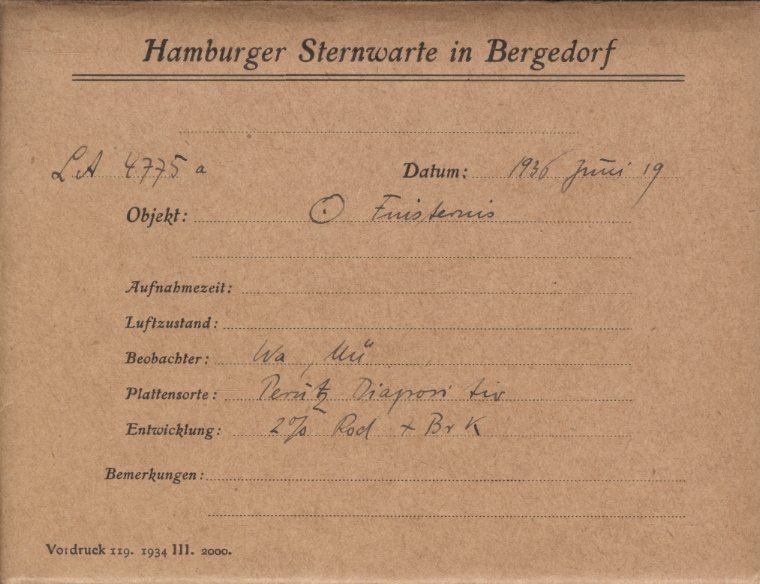 Hamburger Sternwarte in Bergedorf
LA 4775 a Datum: 1936 Juni 19
Objekt: ☉ Finsternis
Aufnahmezeit:
Luftzustand:
Beobachter: Wa, Mü
Plattensorte: Perutz Diapositiv
Entwicklung: 2% Rod + Br K
Bemerkungen:
Vordruck 119. 1934 III. 2000.